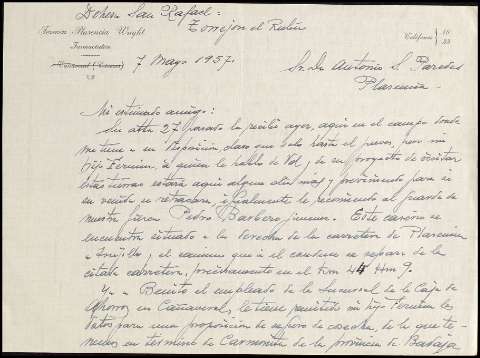 Dehesa San Rafael =
Torrejon el Rubio
Fermin Plasencia Wright
Teléfonos 10
33
7 Mayo 1957.
Sr. Dn. Antonio S. Paredes
Plasencia.
Mi estimado amigo:
Su atta 27 pasado la recibo ayer, aqui en el campo donde
me tiene a su disposicion, claro que solo hasta el jueves, pero mi
hijo Fermin, a quien le hablo de Vd, y de su proyecto de visitar
estas tierras estará aqui algunos dias mas y previniendo para si
su venida se retrasara, igualmente le recomiendo al guarda de
nuestra finca Pedro Barbero Jimenez. Este caserio se
encuentra situado a la derecha de la carretera de Plasencia
a Trujillo, y el camino que a él conduce se separa de la
citada carretera, precisamente en el Km 44 Hm 7.
Y.- Benito el empleado de la Sucursal de la Caja de
Ahorros en Cañaveral, le tiene remitido mi hijo Fermin los
datos para una proposicion de seguro de cosecha, de la que te-
nemos en termino de Carmonita de la provincia de Badajoz